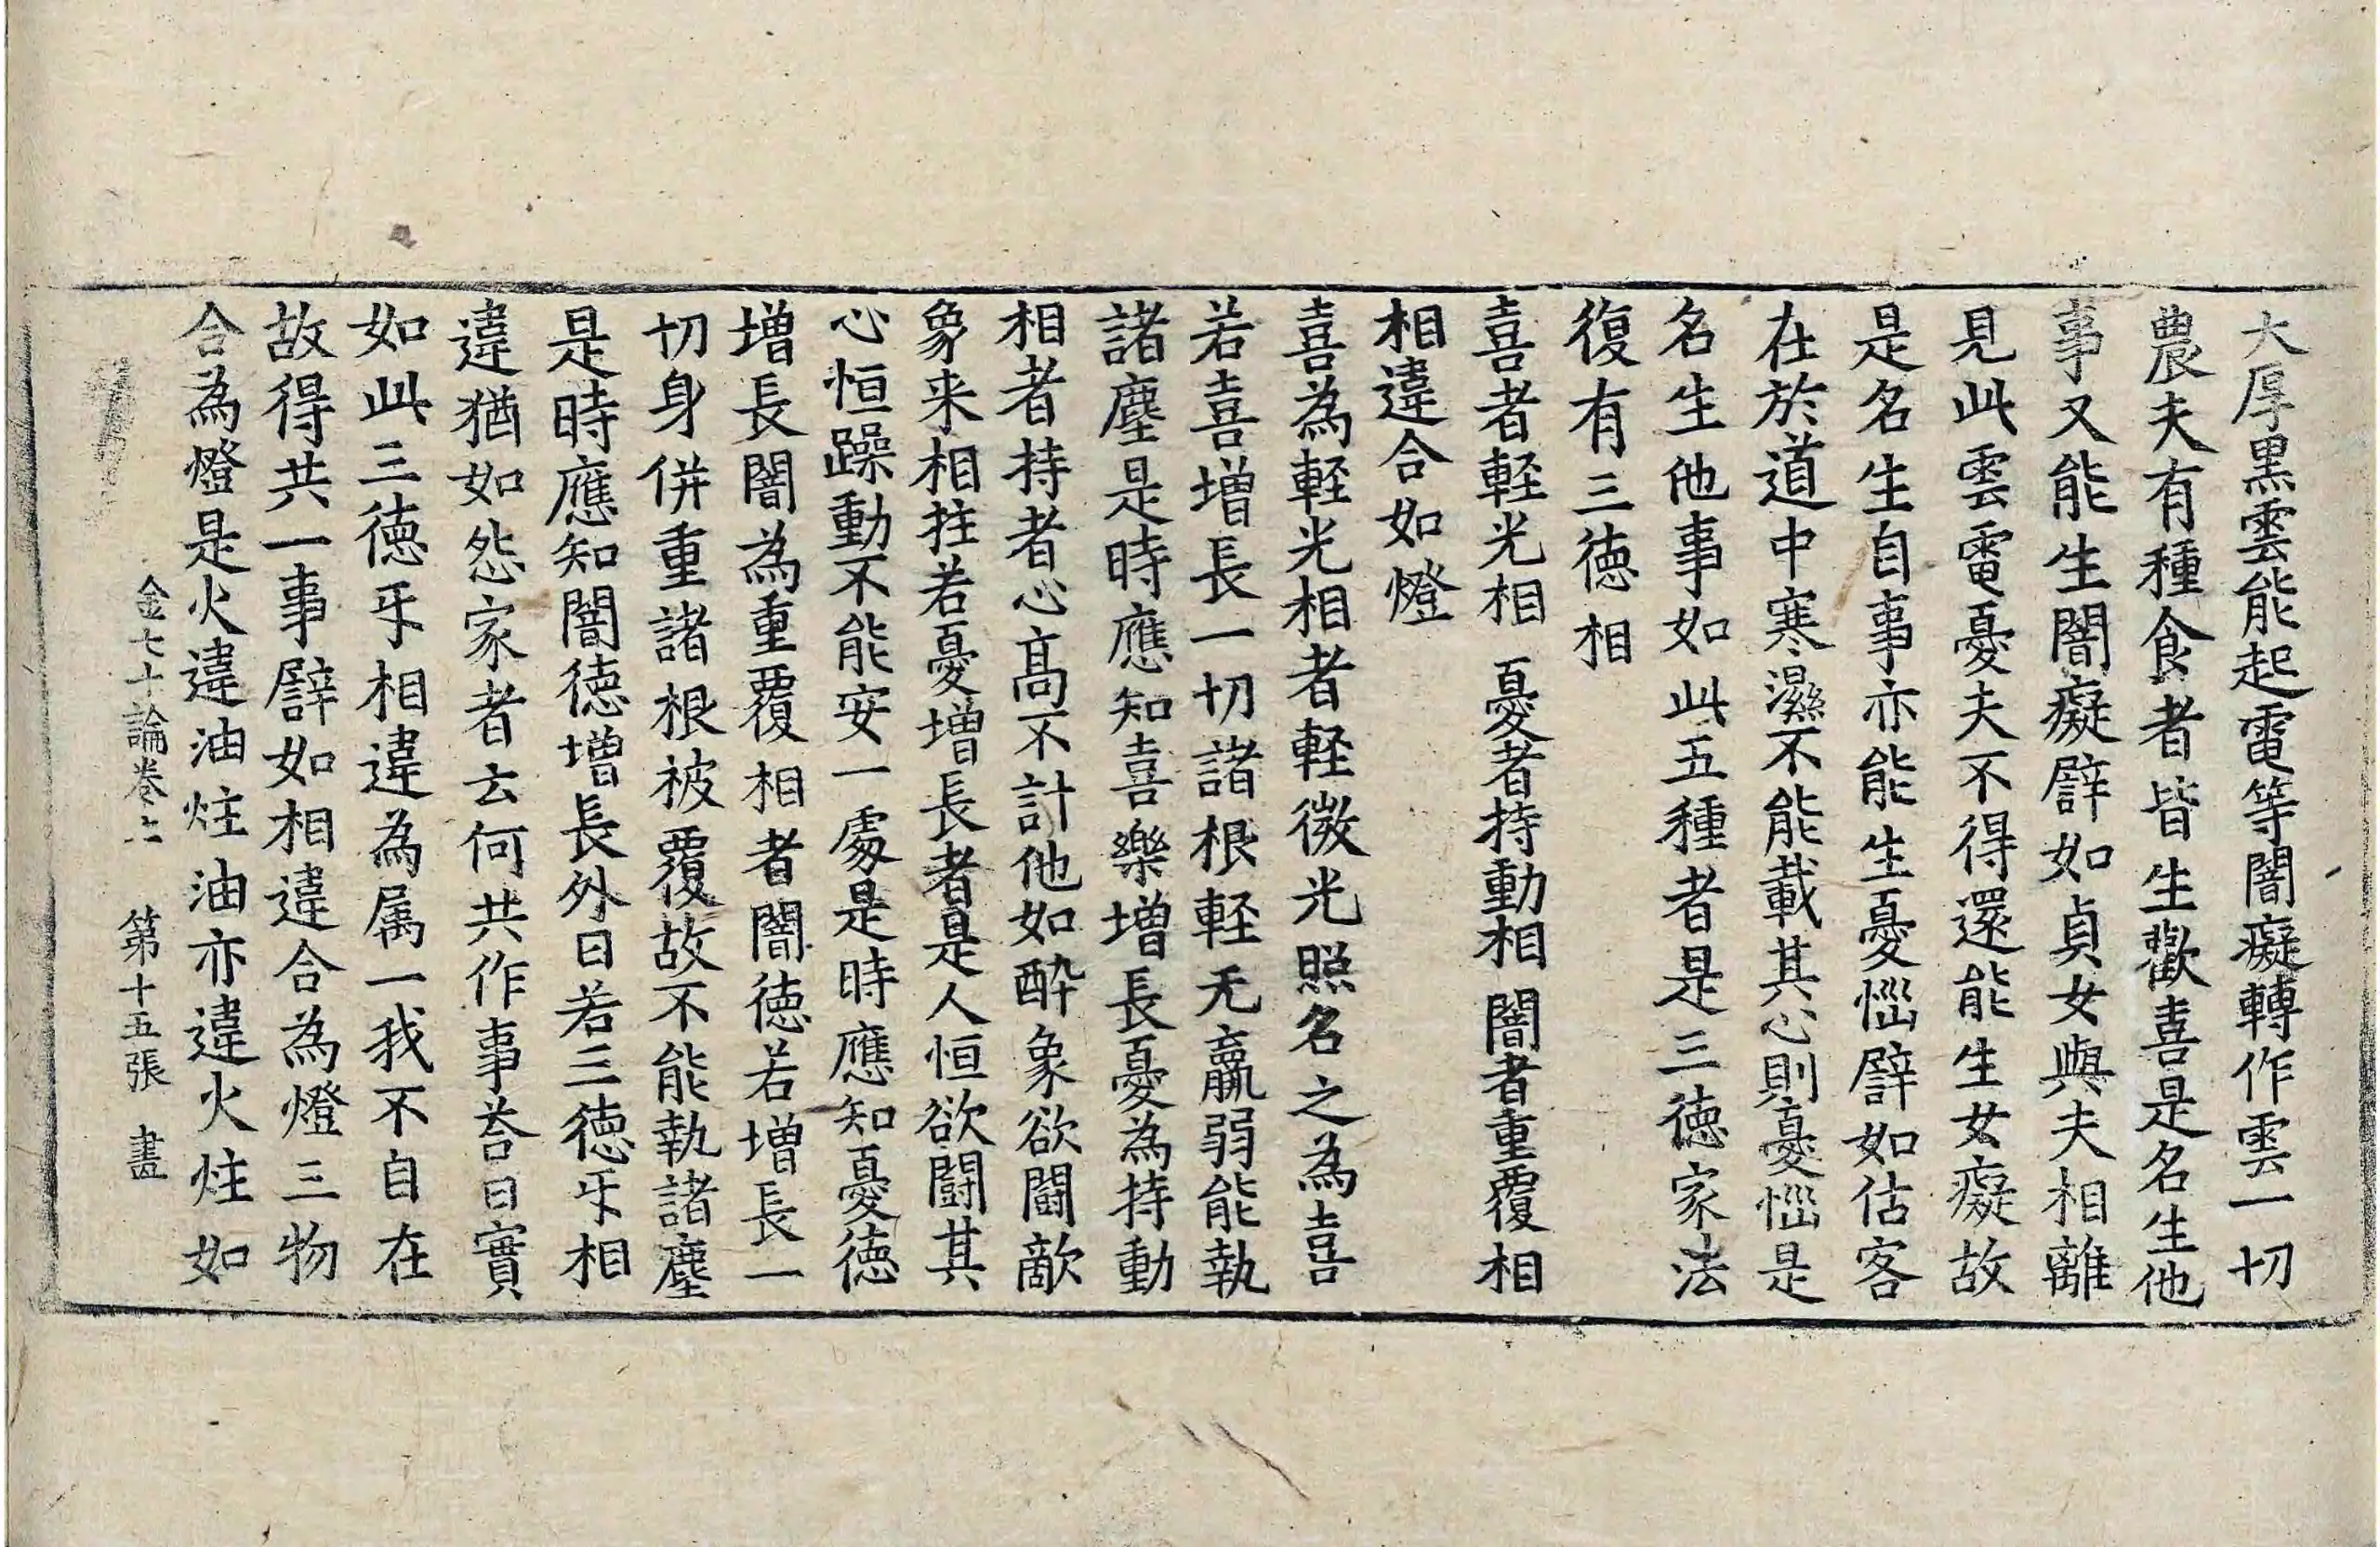 大厚黒雲能起電等闇癡轉作雲一切
農夫有種食者皆生歡喜是名生他
事又能生闇癡譬如貞女與夫相離
見此雲電憂夫不得還能生女癡故
是名生自事亦能生憂惱譬如估客
在於道中寒濕不能載其心則憂惱是
名生他事如此五種者是三徳家法
復有三徳相
喜者軽光相 憂者持動相 闇者重覆相
相違合如燈
喜為軽光相者軽微光照名之為喜
若喜増長一切諸根軽无羸弱能執
諸塵是時應知喜樂増長憂為持動
相者持者心髙不計他如酔象欲鬪敵
象来相拄若憂増長者是人恒欲鬪其
心恒躁動不能安一處是時應知憂徳
増長闇為重覆相者闇徳若増長一
切身併重諸根被覆故不能執諸塵
是時應知闇徳増長外曰若三徳㸦相
違猶如怨家者云何共作事荅曰實
如此三徳㸦相違為属一我不自在
故得共一事譬如相違合為燈三物
合為燈是火違油炷油亦違火炷如
金七十論卷上 第十五張 畫